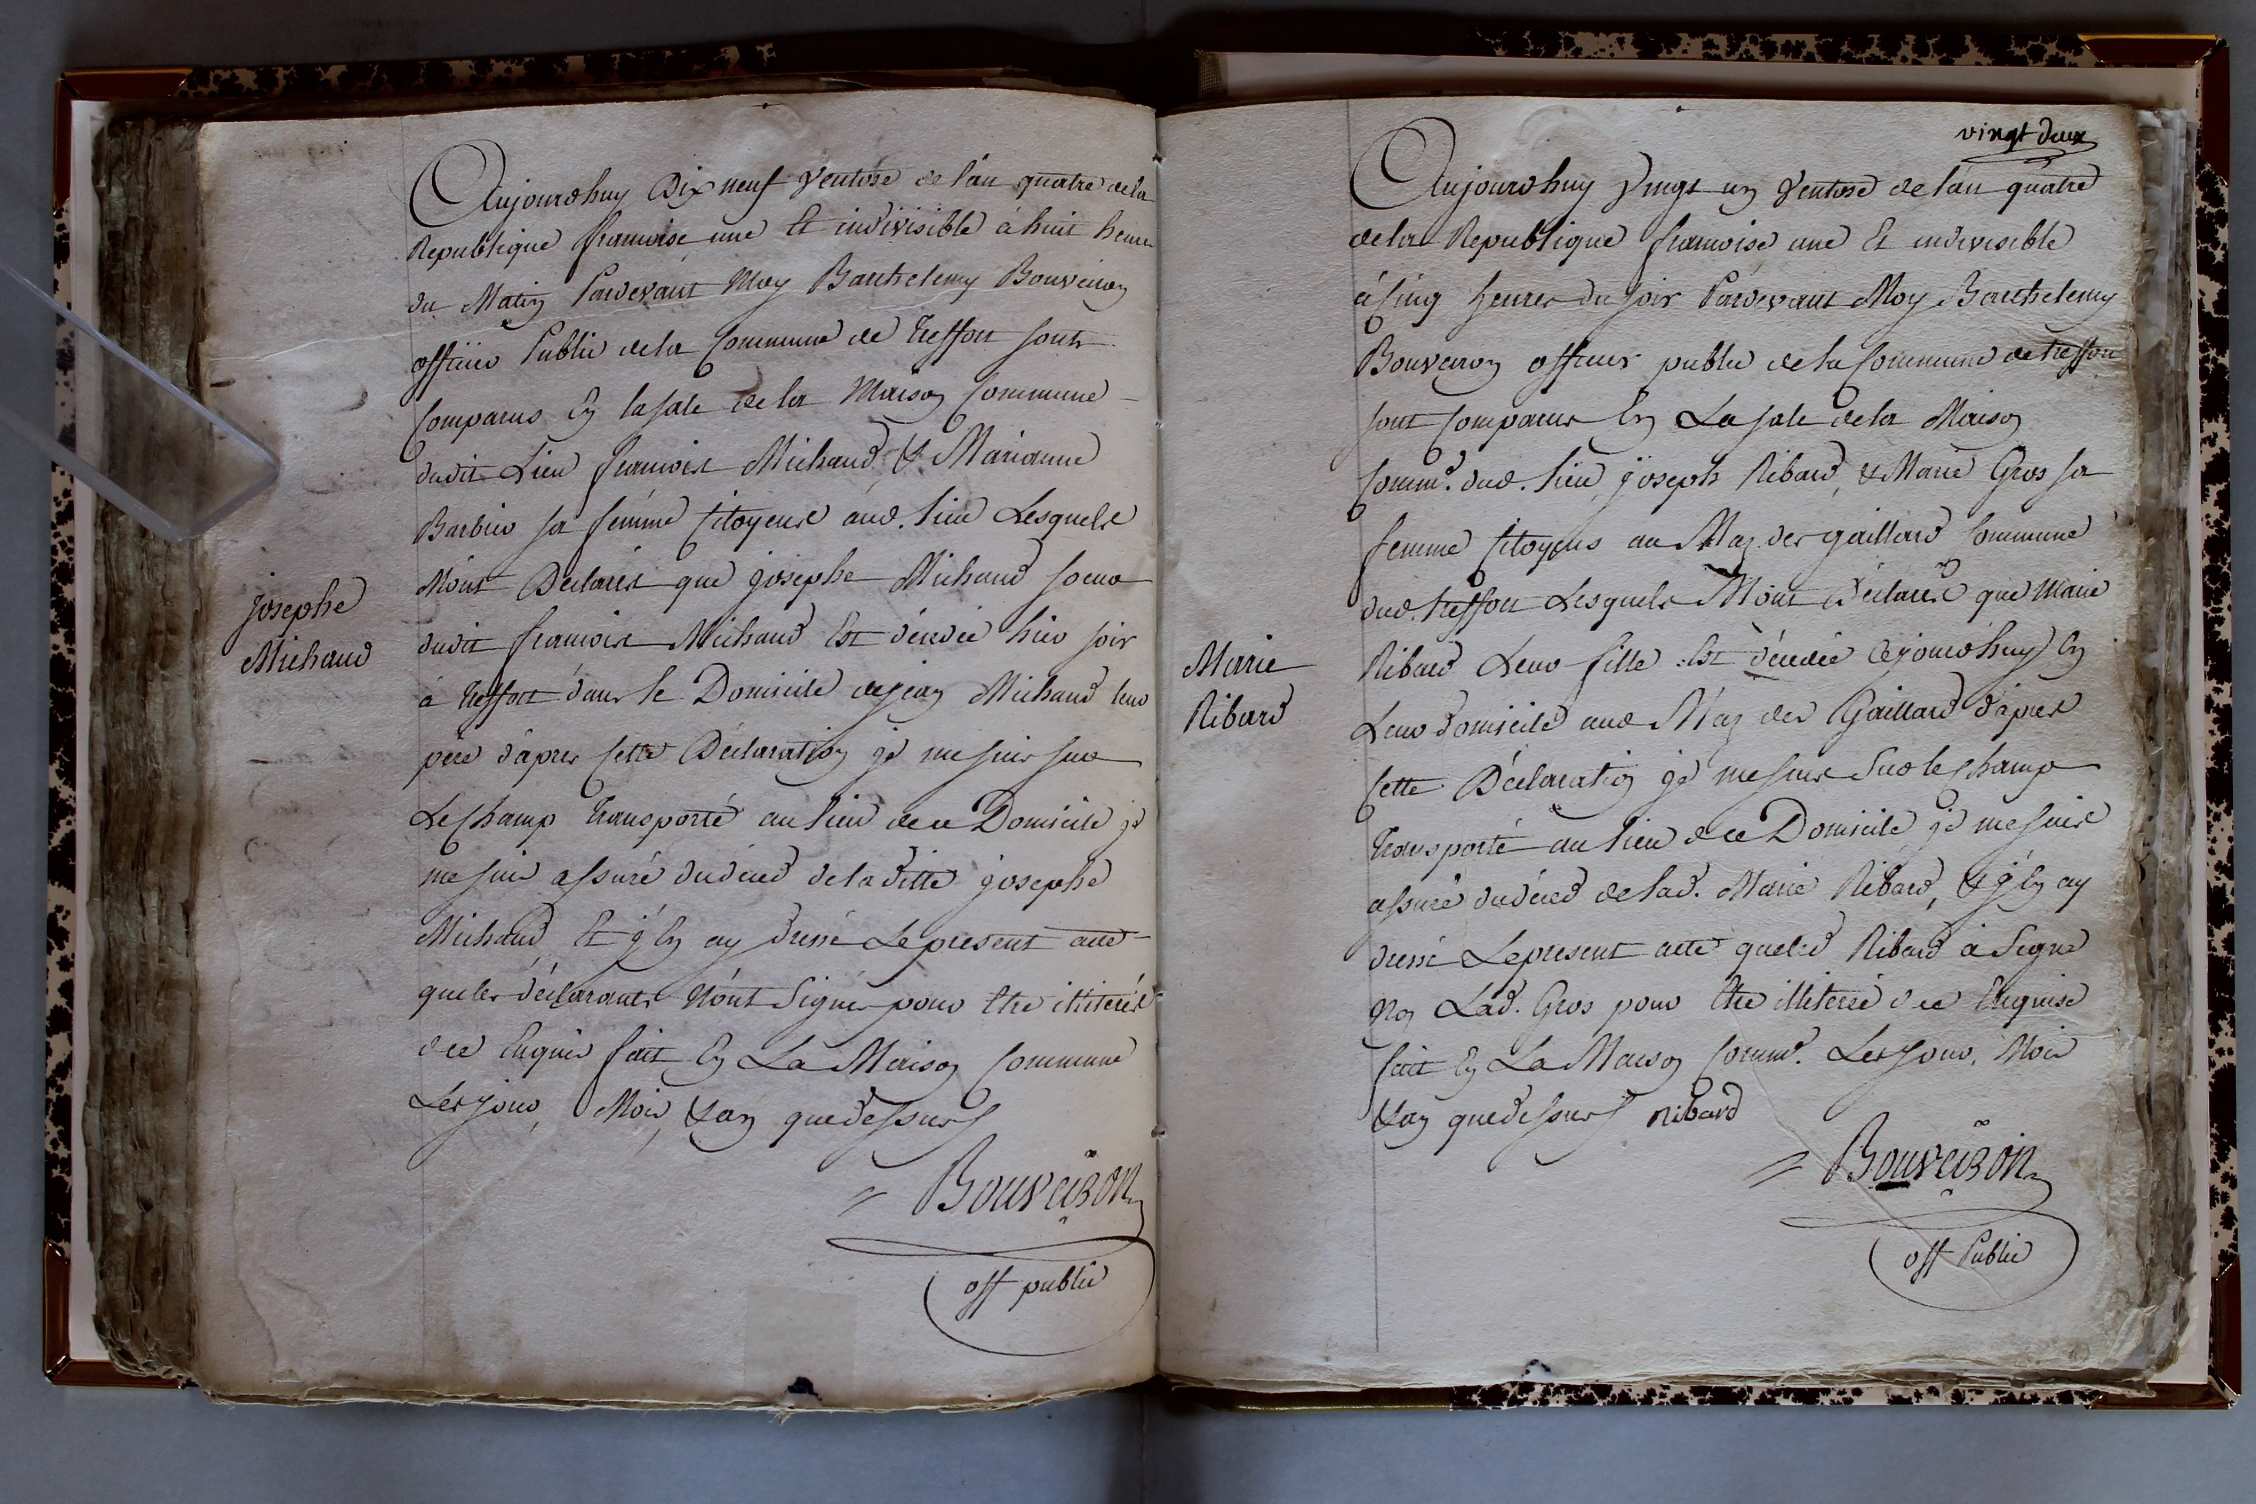 Aujourdhuy Dix neuf Ventose de l'an quatre dela
Republique francoise une Et indivisible à huit heures
du Matin Pardevant Moy Barthelemy Bouveiron
officier Public dela Commune de treffort sont
Comparus En la sale dela Maison Commune
dudit Lieu francois Michaud & Marianne
Barbier sa femme Citoyens aud. lieu Lesquels
M'ont Declarés que josephe Michaud soeur
dudit francois Michaud Est décédée hier soir
à treffort dans le Domicile de jean Michaud leur
père d'après Cette Déclaration je me suis sur
Le Champ transporté au lieu de ce Domicile je
me suis assuré du décés de la ditte josephe
Michaud Et j'En ay dressé Le present acte
que les déclarants N'ont Signés pour Etre illiterés
de ce Enquis fait En La Maison Commune
Les jour, Mois, & an que dessus
josephe
Michaud
Bouveiron
off public
vingt deux
Aujourdhuy Vingt un Ventose de l'an quatre
dela Republique francoise une Et indivisible
à Cinq heures du soir Pardevant Moy Barthelemy
Bouveiron officier public de la Commune de treffort
sont Comparus En La sale dela Maison
Comme. dud. lieu, joseph Ribard, & Marie Gros sa
femme Citoyens au Maz des gaillard Commune
dud. treffort Lesquels M'ont déclarés que Marie
Ribard Leur fille Est décédée Cejourdhuy En
Leur domicile aud Maz des Gaillard d'après
Cette Déclaration je me suis Sur le Champ
transporté au lieu de ce Domicile je me suis
assuré du décés de lad. Marie Ribard, & j'En ay
dressé Le present acte que led Ribard à Signé
Non Lad. Gros pour Etre illiterée de ce Enquise
fait En La Maison Comme. Les jour, Mois
& an que dessus Ribard
Marie
Ribard
Bouveiron
off Public